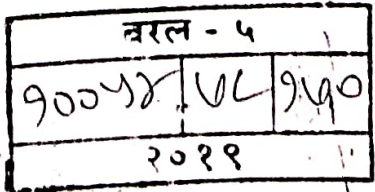 बरल - ५
१००५४ ७८ १५०
२०१९